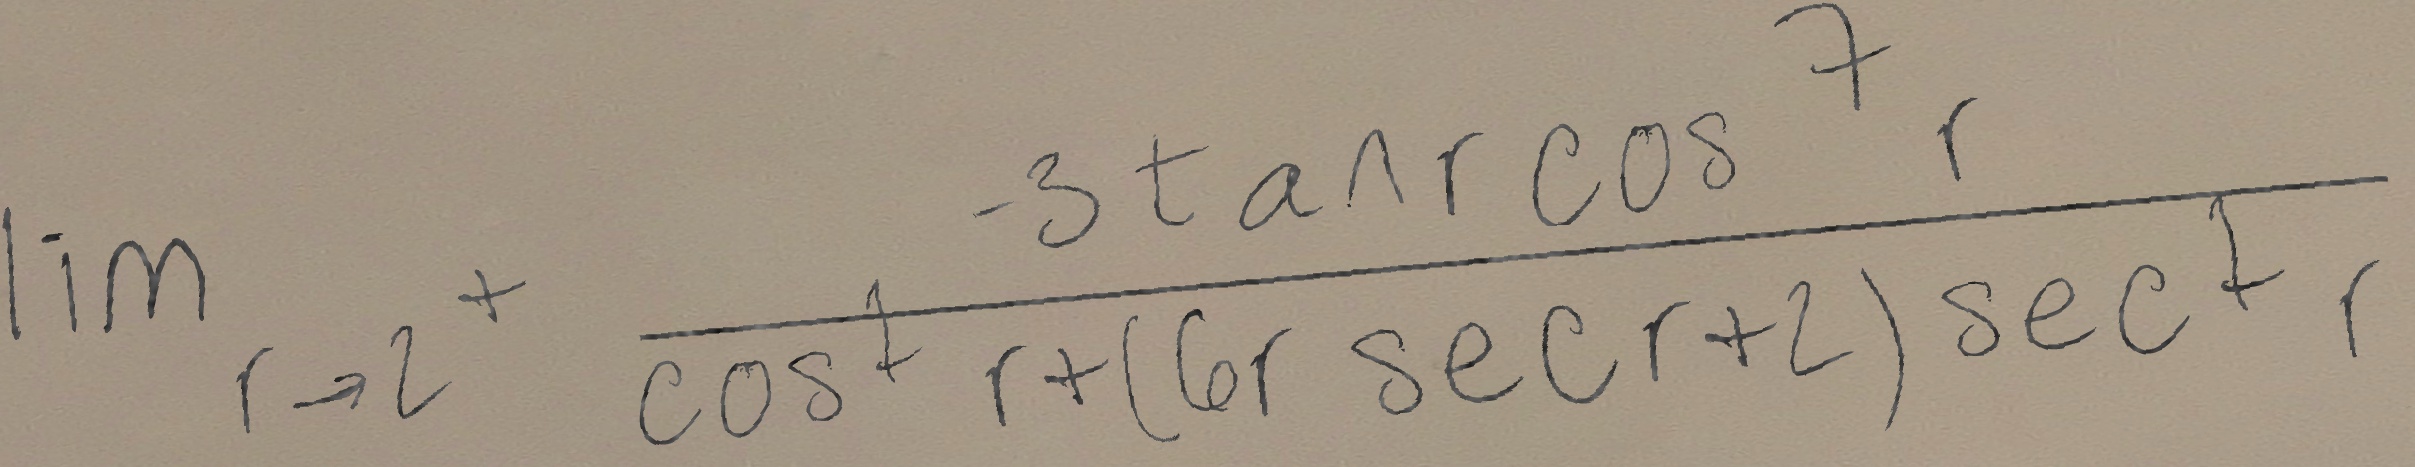 lim r→2⁺ (-3 tan r cos⁷ r)/(cos¹ r+(6r sec r+2) sec¹ r)